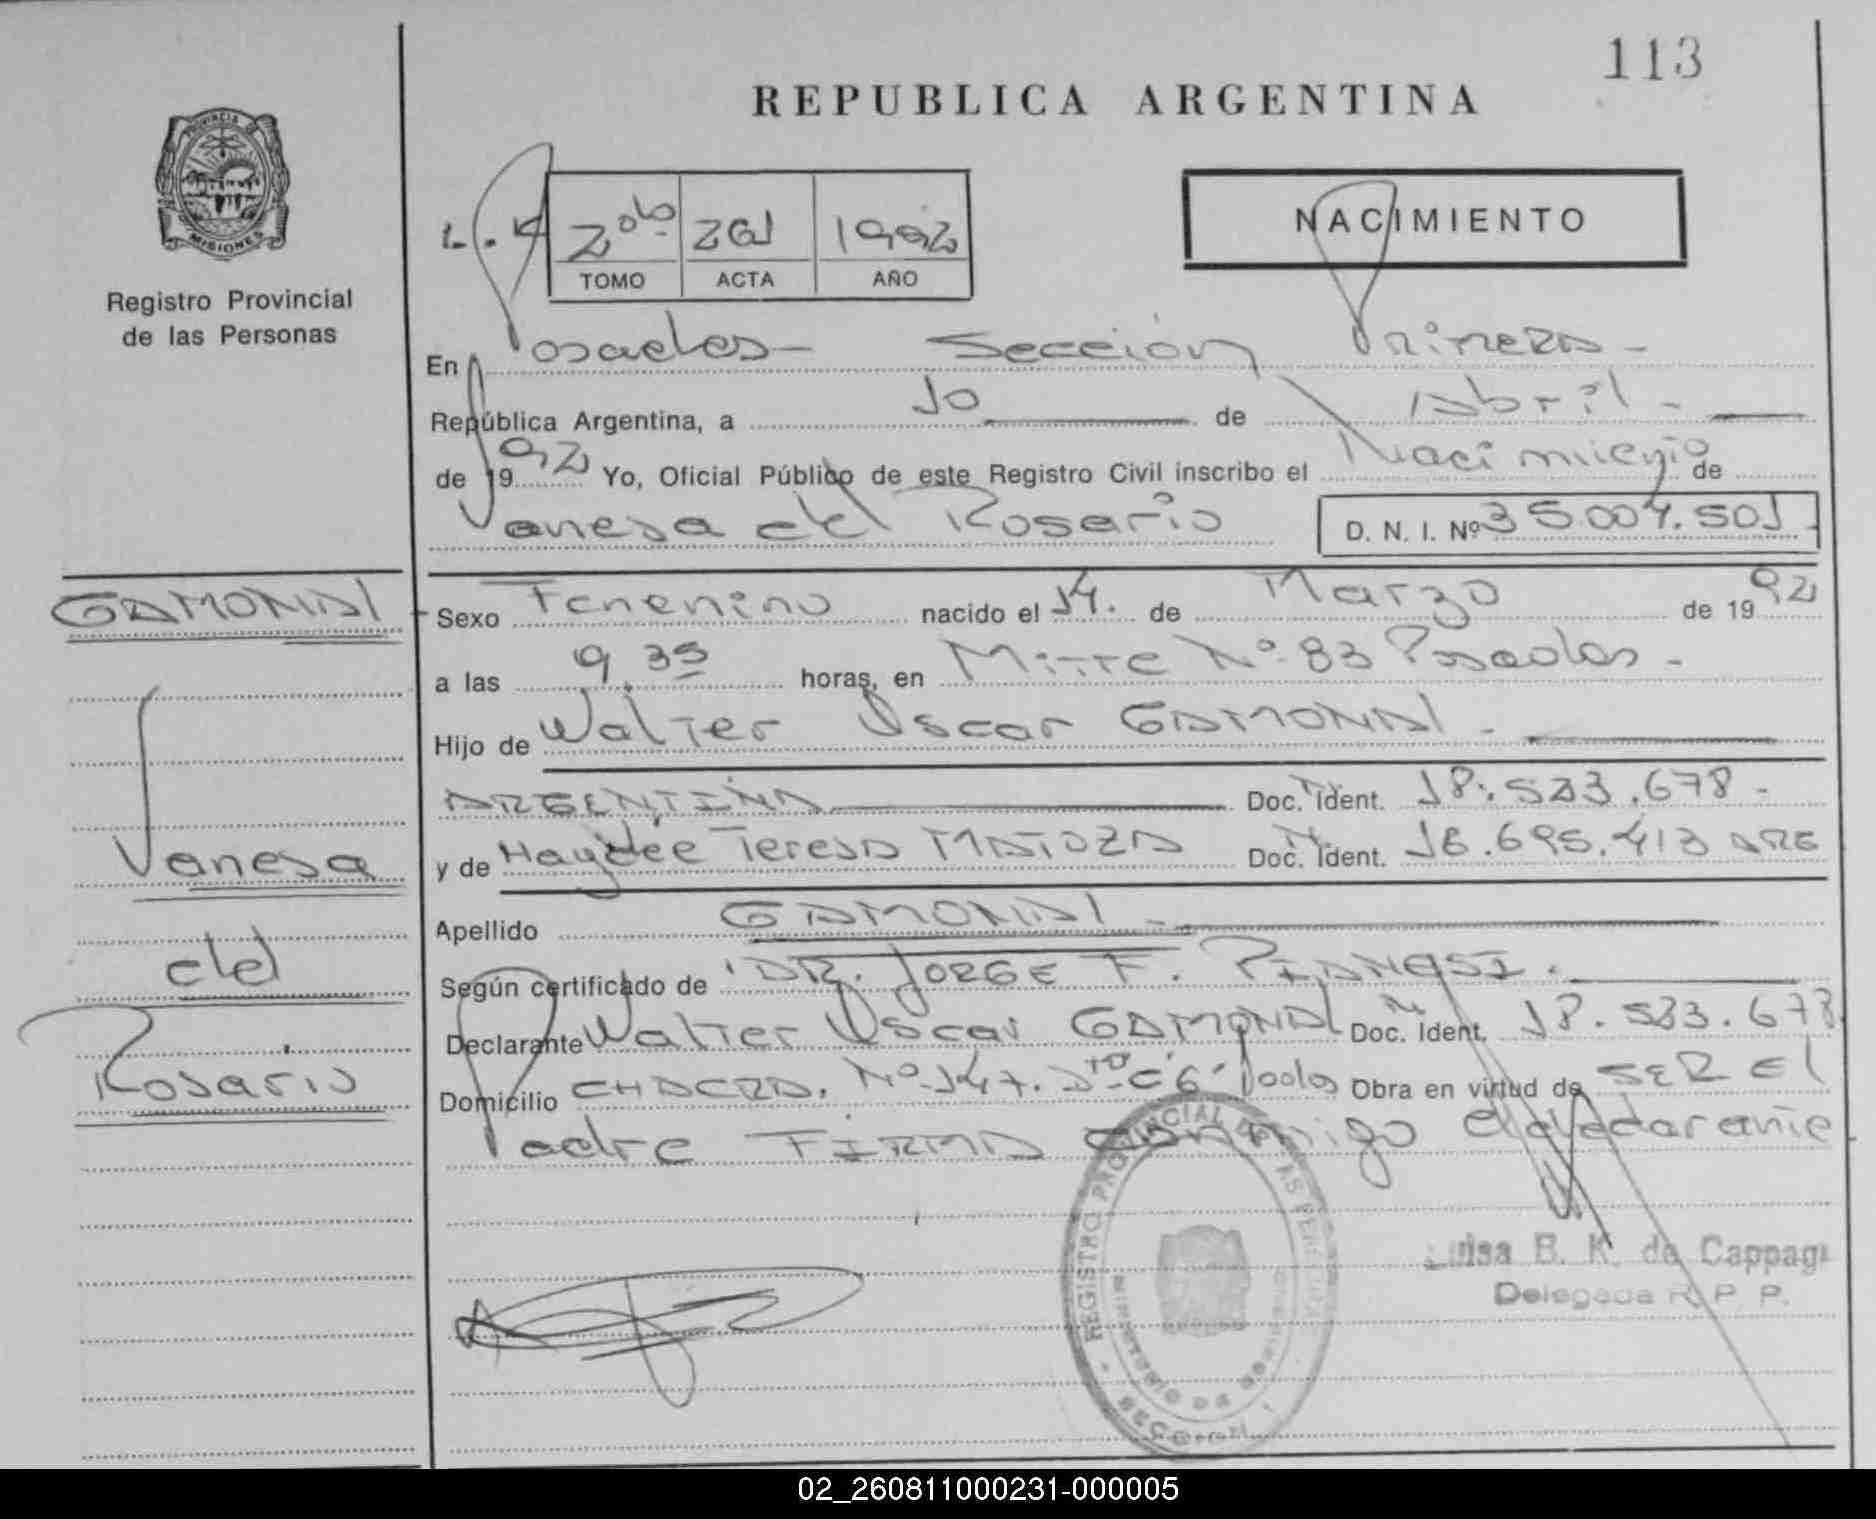 113
REPUBLICA ARGENTINA
PROVINCIA DE
MISIONES
Registro Provincial
de las Personas
2º 261 1992
TOMO ACTA AÑO
NACIMIENTO
En Posadas - Sección Primera -
República Argentina, a 10 de Abril -
de 1992 Yo, Oficial Público de este Registro Civil inscribo el Nacimiento de
Vanesa del Rosario D. N. I. Nº 35.004.501
GAMONAL
Sexo Femenino nacido el 14. de Marzo de 1992
a las 9,35 horas, en Mitre Nº 83 Posadas -
Hijo de Walter Oscar GAMONAL -
ARGENTINA Doc. Ident. 18.533.678 -
y de Haydée Teresa MATOZA Doc. Ident. 18.695.413 ARG
Vanesa
Apellido GAMONAL -
del
Según certificado de DR. JORGE F.
Declarante Walter Oscar GAMONAL Doc. Ident. 18.533.678
Rosario
Domicilio CHACRA. Nº 147. Pdas Obra en virtud de SER El
Padre FIRMA conmigo el declarante
REGISTRO PROVINCIAL DE LAS PERSONAS
MINISTERIO DE GOBIERNO
SECCION
Luisa E. K. de Cappagi
Delegada R. P. P.
02_260811000231-000005